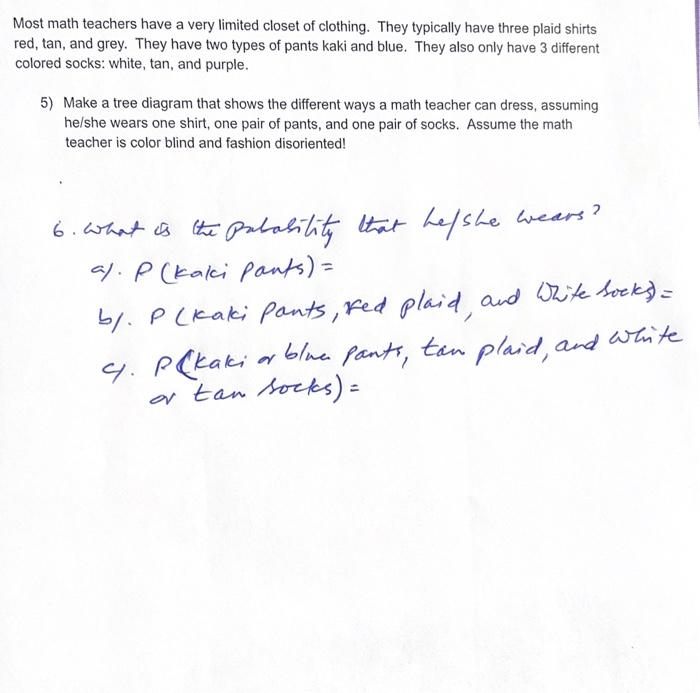 Most math teachers have a very limited closet of clothing. They typically have three plaid shirts
red, tan, and grey. They have two types of pants kaki and blue. They also only have 3 different
colored socks: white, tan, and purple.
5) Make a tree diagram that shows the different ways a math teacher can dress, assuming
he/she wears one shirt, one pair of pants, and one pair of socks. Assume the math
teacher is color blind and fashion disoriented!
6. What is the pabability that he/she wears?
a). P (kaki pants) =
b). P (kaki pants, red plaid, and white socks) =
c). P(kaki or blue pants, tan plaid, and white
or tan socks) =